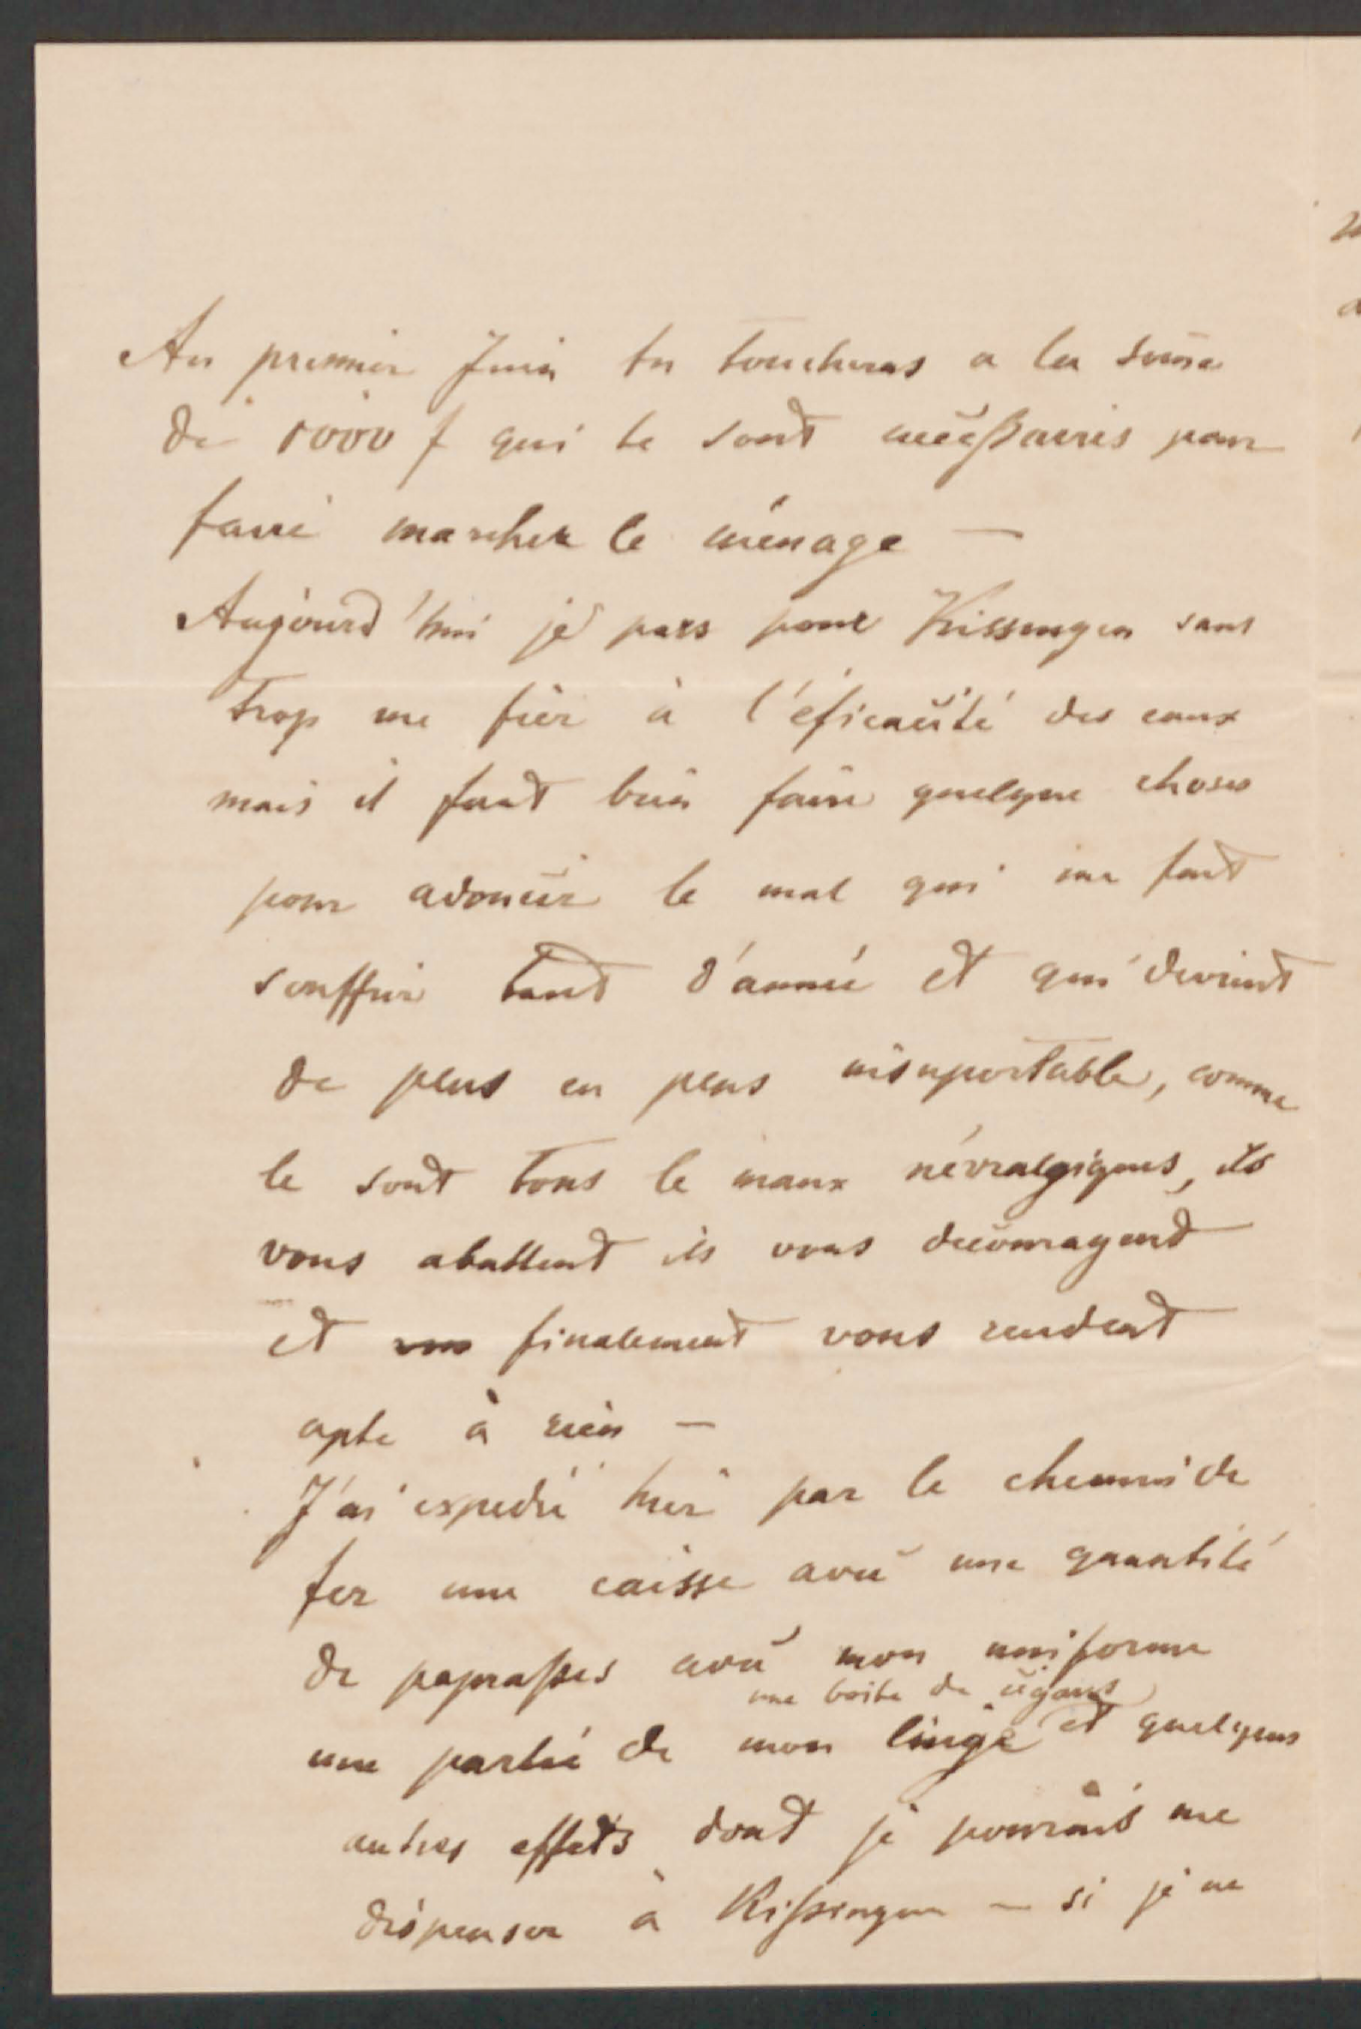 Au premier Juin tu toucheras a la som̄e
de 1000 f qui te sont néceßaires pour
faire marcher le ménage —
Aujourd'hui je pars pour Kissingen sans
trop me fier à l'éficacité des eaux
mais il faut bien faire quelque choses
pour adoucir le mal qui me fait
souffrir tant d'année et qui devient
de plus en plus insuportable, comme
le sont tous le maux névralgiques, ils
vous abattent ils vous decouragent
et finalement vous rendent
apte à rien —
J'ai expedié hier par le chemin de
fer une caisse avec une quantité
de papraßes avec mon uniforme
une boite de cigares
une partie de mon linge et quelques
autres effets dont je pourrais me
dispenser à Kißingen — si je ne